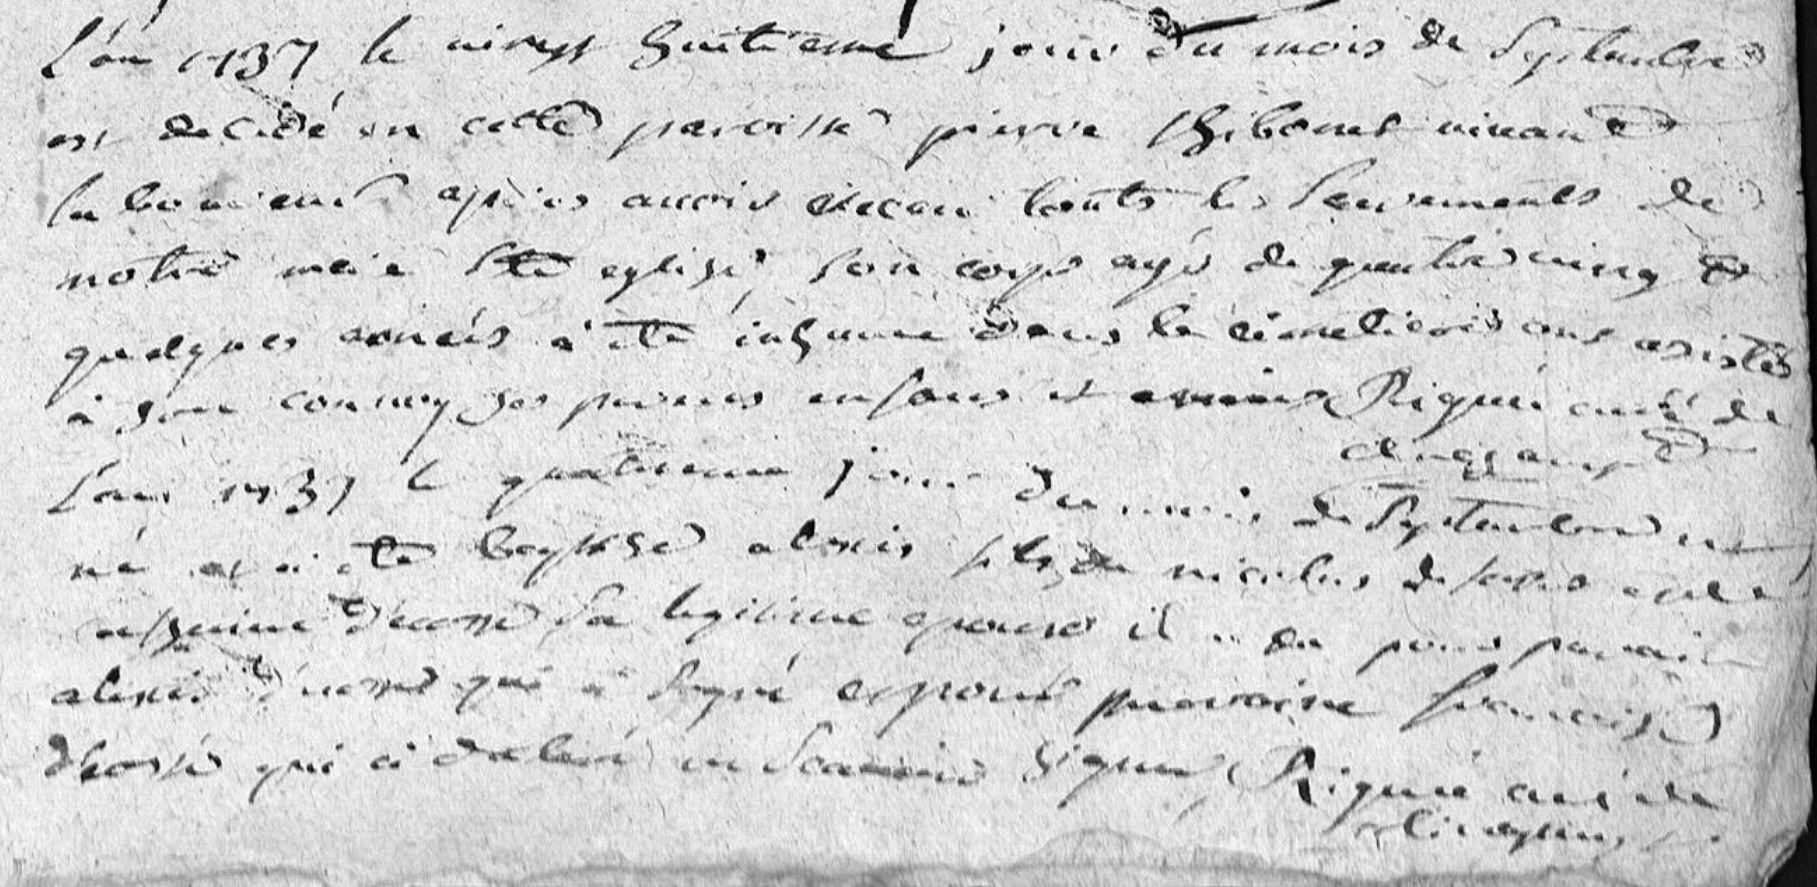 L'an 1737 le vingt huitieme jour du mois de Septembre
est decedé en cette paroisse pierre thibonet vivant
laboureur après avoir receu touts les Sacrements de
notre mere Ste eglise, son corps agé de quatre vingt et
quelques années a été inhumé dans le cimetiere ont assistés
à son convoy ses parens enfans et amis Riquié curé de
L'an 1737 le quatrieme jour du mois de Septembre est
né et a été baptisé alexis fils de nicolas et de
sa legitime epouse il a eu pour parain
alexis qui a signé et pour maraine francoise
qui a declaré ne scavoir signer, Riquié curé de